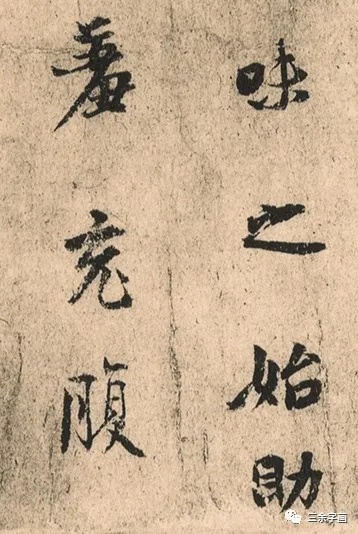 味之始助
羞充腹
三余字画